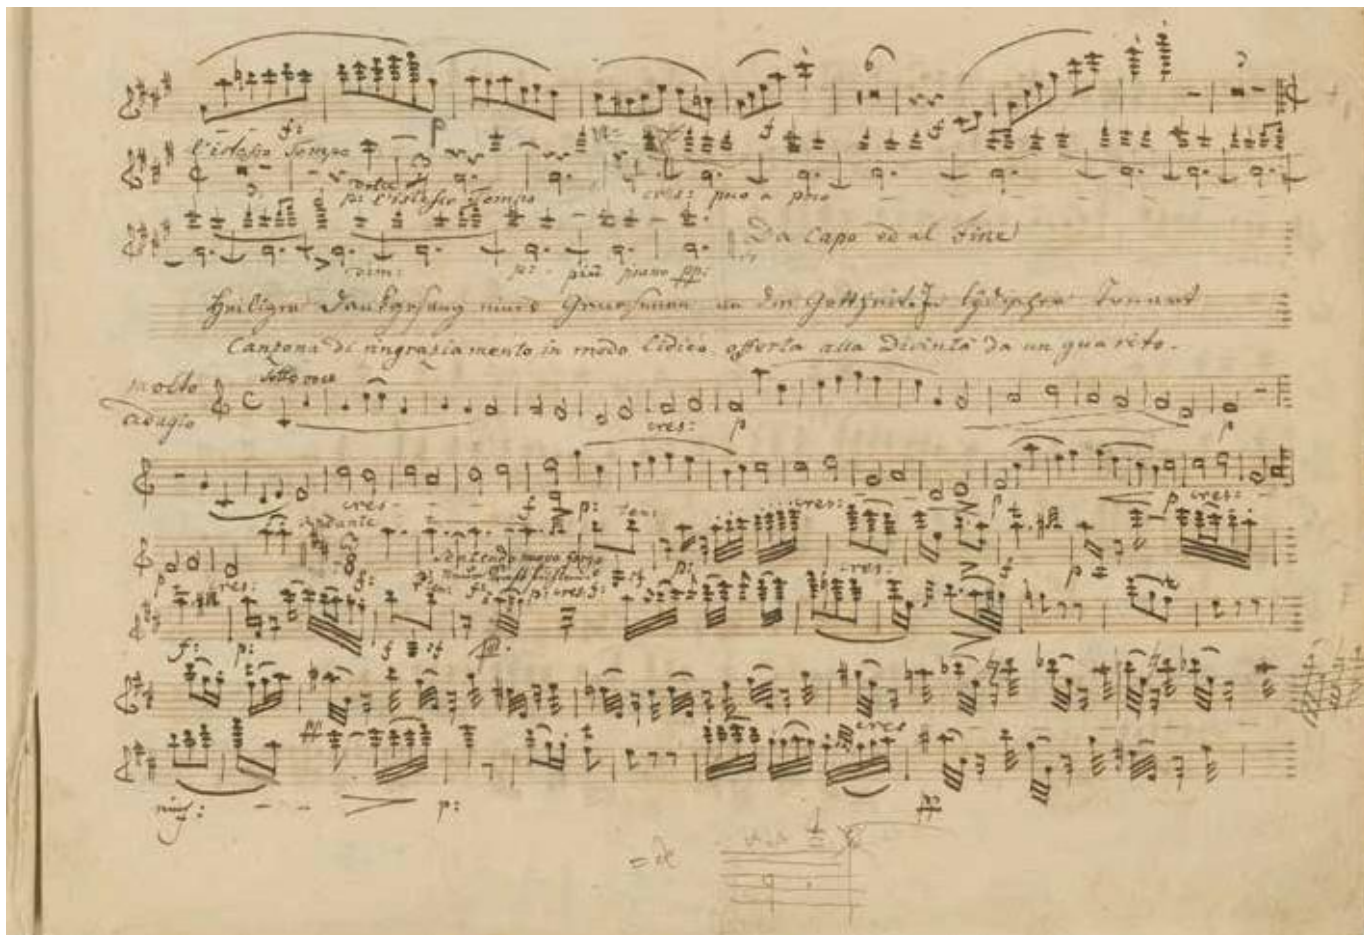 f: p f f
l'istesso Tempo
p: l'istesso Tempo cres: poco a poco
Da Capo ed al Fine
dim: p: più piano pp:
Heiliger Dankgesang eines Genesenen an die Gottheit, In lÿdischer Tonart
Canzona di ringraziamento in modo lidico offerta alla Divinità da un guarito.
molto sotto voce
adagio
cres: p p
cres - - - f p: ten: cres: - - p cres: -
Andante
p cres: f: p: cres: p
p: cres: f:
f: p: f f
cres
p: pp